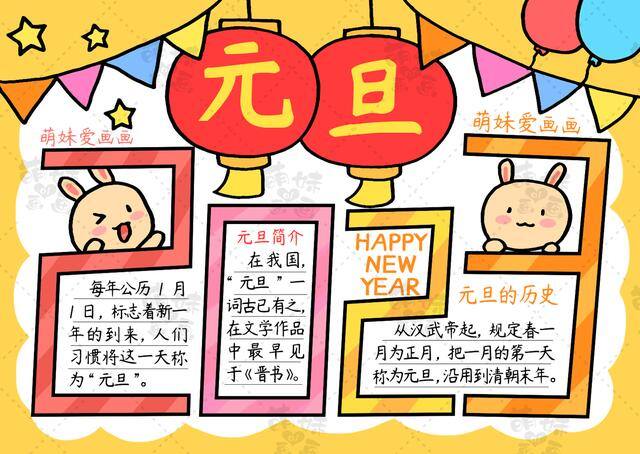 元旦
萌妹爱画画
萌妹爱画画
每年公历1月
1日，标志着新一
年的到来，人们
习惯将这一天称
为“元旦”。
元旦简介
在我国，
“元旦”一
词古已有之，
在文学作品
中最早见
于《晋书》。
HAPPY
NEW
YEAR
元旦的历史
从汉武帝起，规定春一
月为正月，把一月的第一天
称为元旦，沿用到清朝末年。
2023